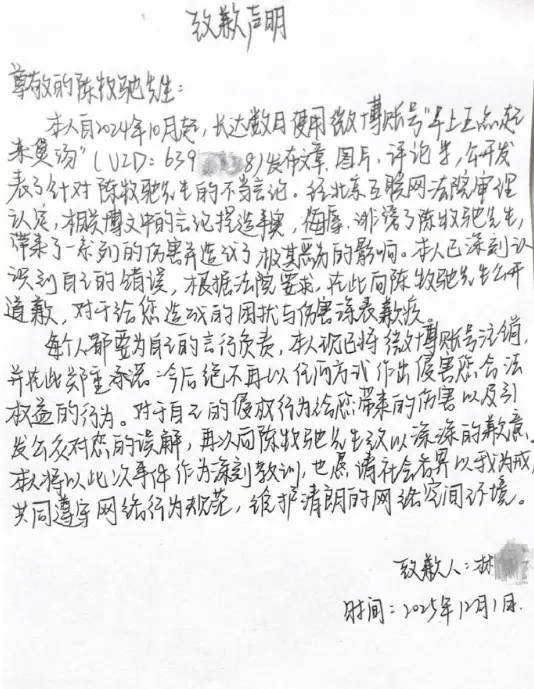 致歉声明
尊敬的陈牧驰先生:
本人自2024年10月起,长达数日使用微博账号"早上五点起
来煲汤"(UID:639 8)发布文章、图片、评论等,公开发
表了针对陈牧驰先生的不当言论。经北京互联网法院审理
认定,相关博文中的言论捏造事实,侮辱、诽谤了陈牧驰先生,
带来了一系列的伤害并造成了极其恶劣的影响。本人已深刻认
识到自己的错误,根据法院要求,在此向陈牧驰先生公开
道歉,对于给您造成的困扰与伤害深表歉疚。
每个人都要为自己的言行负责,本人现已将微博账号注销,
并在此郑重承诺:今后绝不再以任何方式作出侵害您合法
权益的行为。对于自己的侵权行为给您带来的伤害以及引
发公众对您的误解,再次向陈牧驰先生致以深深的歉意。
本人将以此次事件作为深刻教训,也恳请社会各界以我为戒,
共同遵守网络行为规范,维护清朗的网络空间环境。
致歉人:林
时间:2025年12月1日.